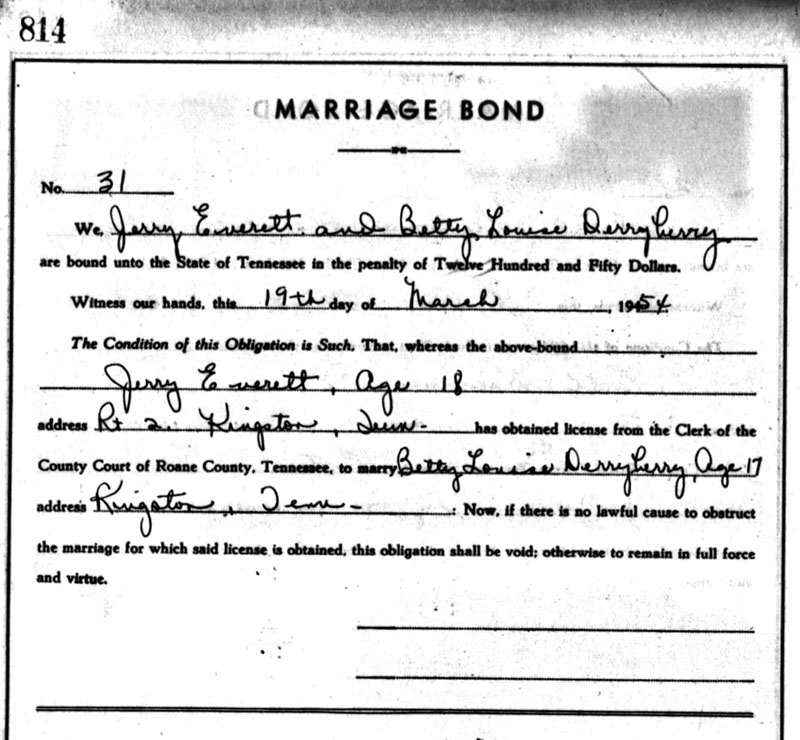 814
MARRIAGE BOND
No. 31
We, Jerry Everett. and Betty Louise Derryberry
are bound unto the State of Tennessee in the penalty of Twelve Hundred and Fifty Dollars.
Witness our hands, this 19th day of March, 1954
The Condition of this Obligation is Such, That, whereas the above-bound
Jerry Everett, Age 18
address Rt 2. Kingston, Tenn- has obtained license from the Clerk of the
County Court of Roane County, Tennessee, to marry Betty Louise Derryberry, Age 17
address Kingston, Tenn- : Now, if there is no lawful cause to obstruct
the marriage for which said license is obtained, this obligation shall be void; otherwise to remain in full force
and virtue.